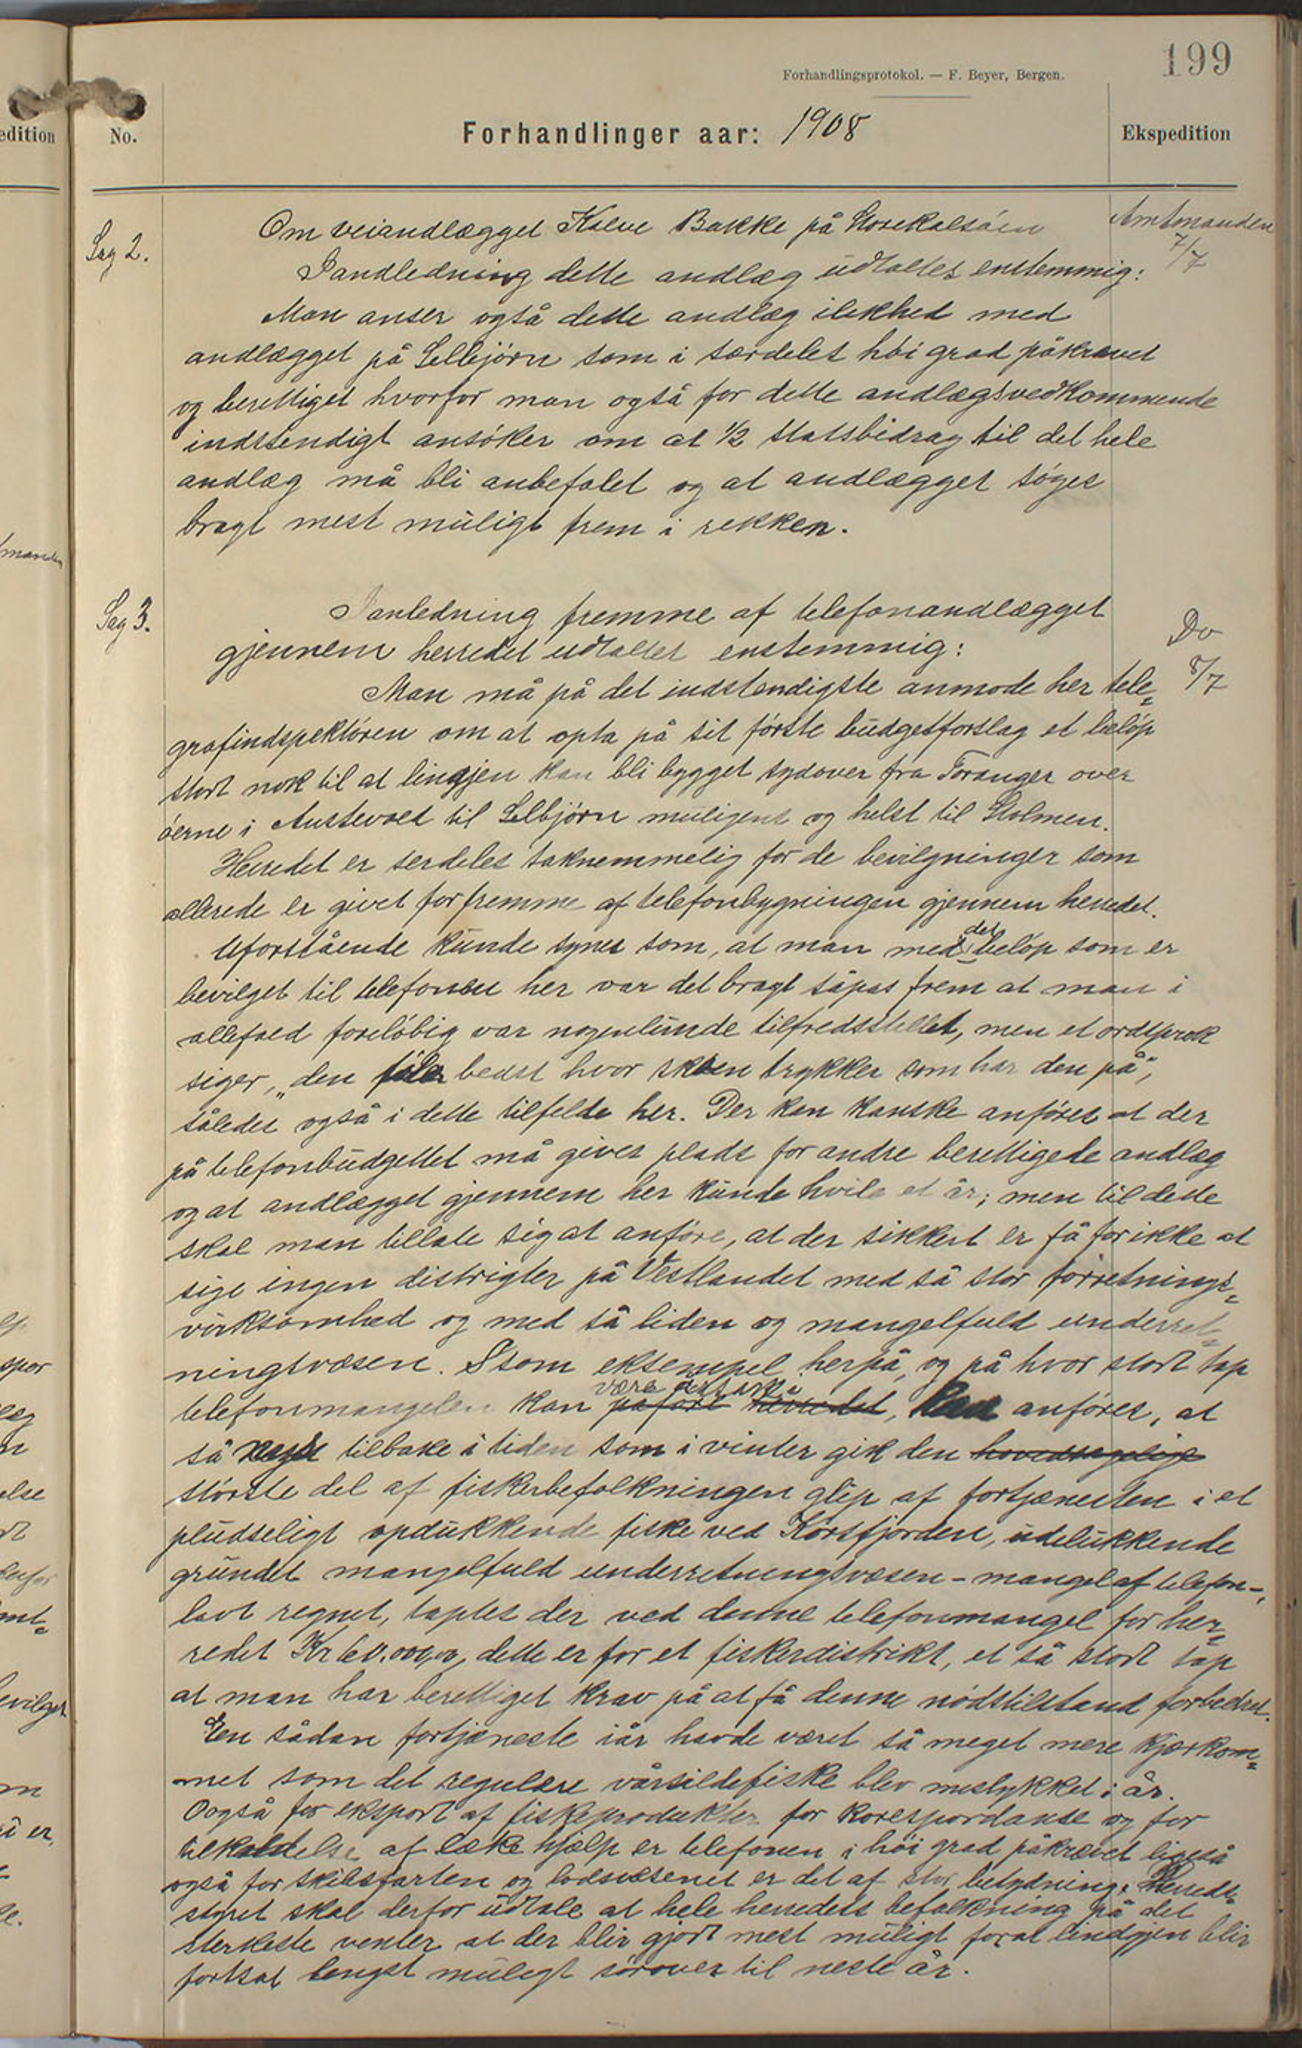 199
Forhandlingsprotokol. — F. Beyer, Bergen.
edition
No.
Forhandlinger aar: 1908
Ekspedition
Sag 2.
Om veiandlægget Kalve Bakke på Storekalsøen
Amtmanden
7/7
I andledning dette andlæg udtaltes enstemmig:
Man anser også dette andlæg ilikhed med
andlægget på Selbjörn som i særdeles höi grad påkrævet
og berettiget hvorfor man også for dette andlægsvedkommende
indstendigt ansöker om at 1/2 statsbidrag til det hele
andlæg må bli anbefalet og at andlægget söges
bragt mest muligt frem i rekken.
Sag 3.
I anledning fremme af telefonandlægget
gjennem herredet udtaltes enstemmig:
Do
8/7
Man må på det indstendigste anmode her tele=
grafindspektören om at opta på sit förste budgetforslag et belöp
stort nok til at lindjen kan bli bygget sydover fra Toranger over
öerne i Austevold til Selbjörn muligens og helst til Stolmen.
Herredet er serdeles taknemmelig for de bevilgninger som
allerede er givet for fremme af telefonbygningen gjennem herredet.
Uforstående kunde synes som, at man med det belöp som er
bevilget til telefonen her var det bragt såpas frem at man i
allefald forelöbig var nogenlunde tilfredsstillet, men et ordsprok
siger, „den föler bedst hvor skoen trykker som har den på",
således også i dette tilfelde her. Der kan kanske anföres at der
på telefonbudgettet må gives plads for andre berettigede andlæg
og at andlægget gjennem her kunde hvile et år; men til dette
skal man tillate sig at anföre, at der sikkert er få for ikke at
sige ingen distrigter på Vestlandet med så stor forretnings=
virksomhed og med så liden og mangelfuld underret=
ningsvæsen. Som eksempel herpå, og på hvor stort tap
telefonmangelen kan påföre herredet, kan anföres, at
så tilbake i tiden som i vinter gik den hovedsagelige
störste del af fiskerbefolkningen glip af fortjænesten i et
pludseligt opdukkende fiske ved Korsfjorden, udelukkende
grundet mangelfuld underretningsvæsen – mangel af telefon –,
lavt regnet, taptes der ved denne telefonmangel for her=
redet Kr 60.000,00, dette er for et fiskerdistrikt, et så stort tap
at man har berettiget krav på at få denne nödstilstand forbedret.
Een sådan fortjæneste iår havde været så meget mere kjærkom=
met som det regulære vårsildefiske blev mislykket i år.
Også for eksport af fiskeprodukter for korespordanse og for
tilkaldelse af læke hjælp er telefonen i höi grad påkrævet ligeså
også for skibsfarten og lodsvæsenet er det af stor betydning. Herreds=
styret skal derfor udtale at hele herredets befolkning på det
sterkeste venter at der blir gjort mest muligt for at lindjen blir
fortsat lengst muligt sörover til neste år.